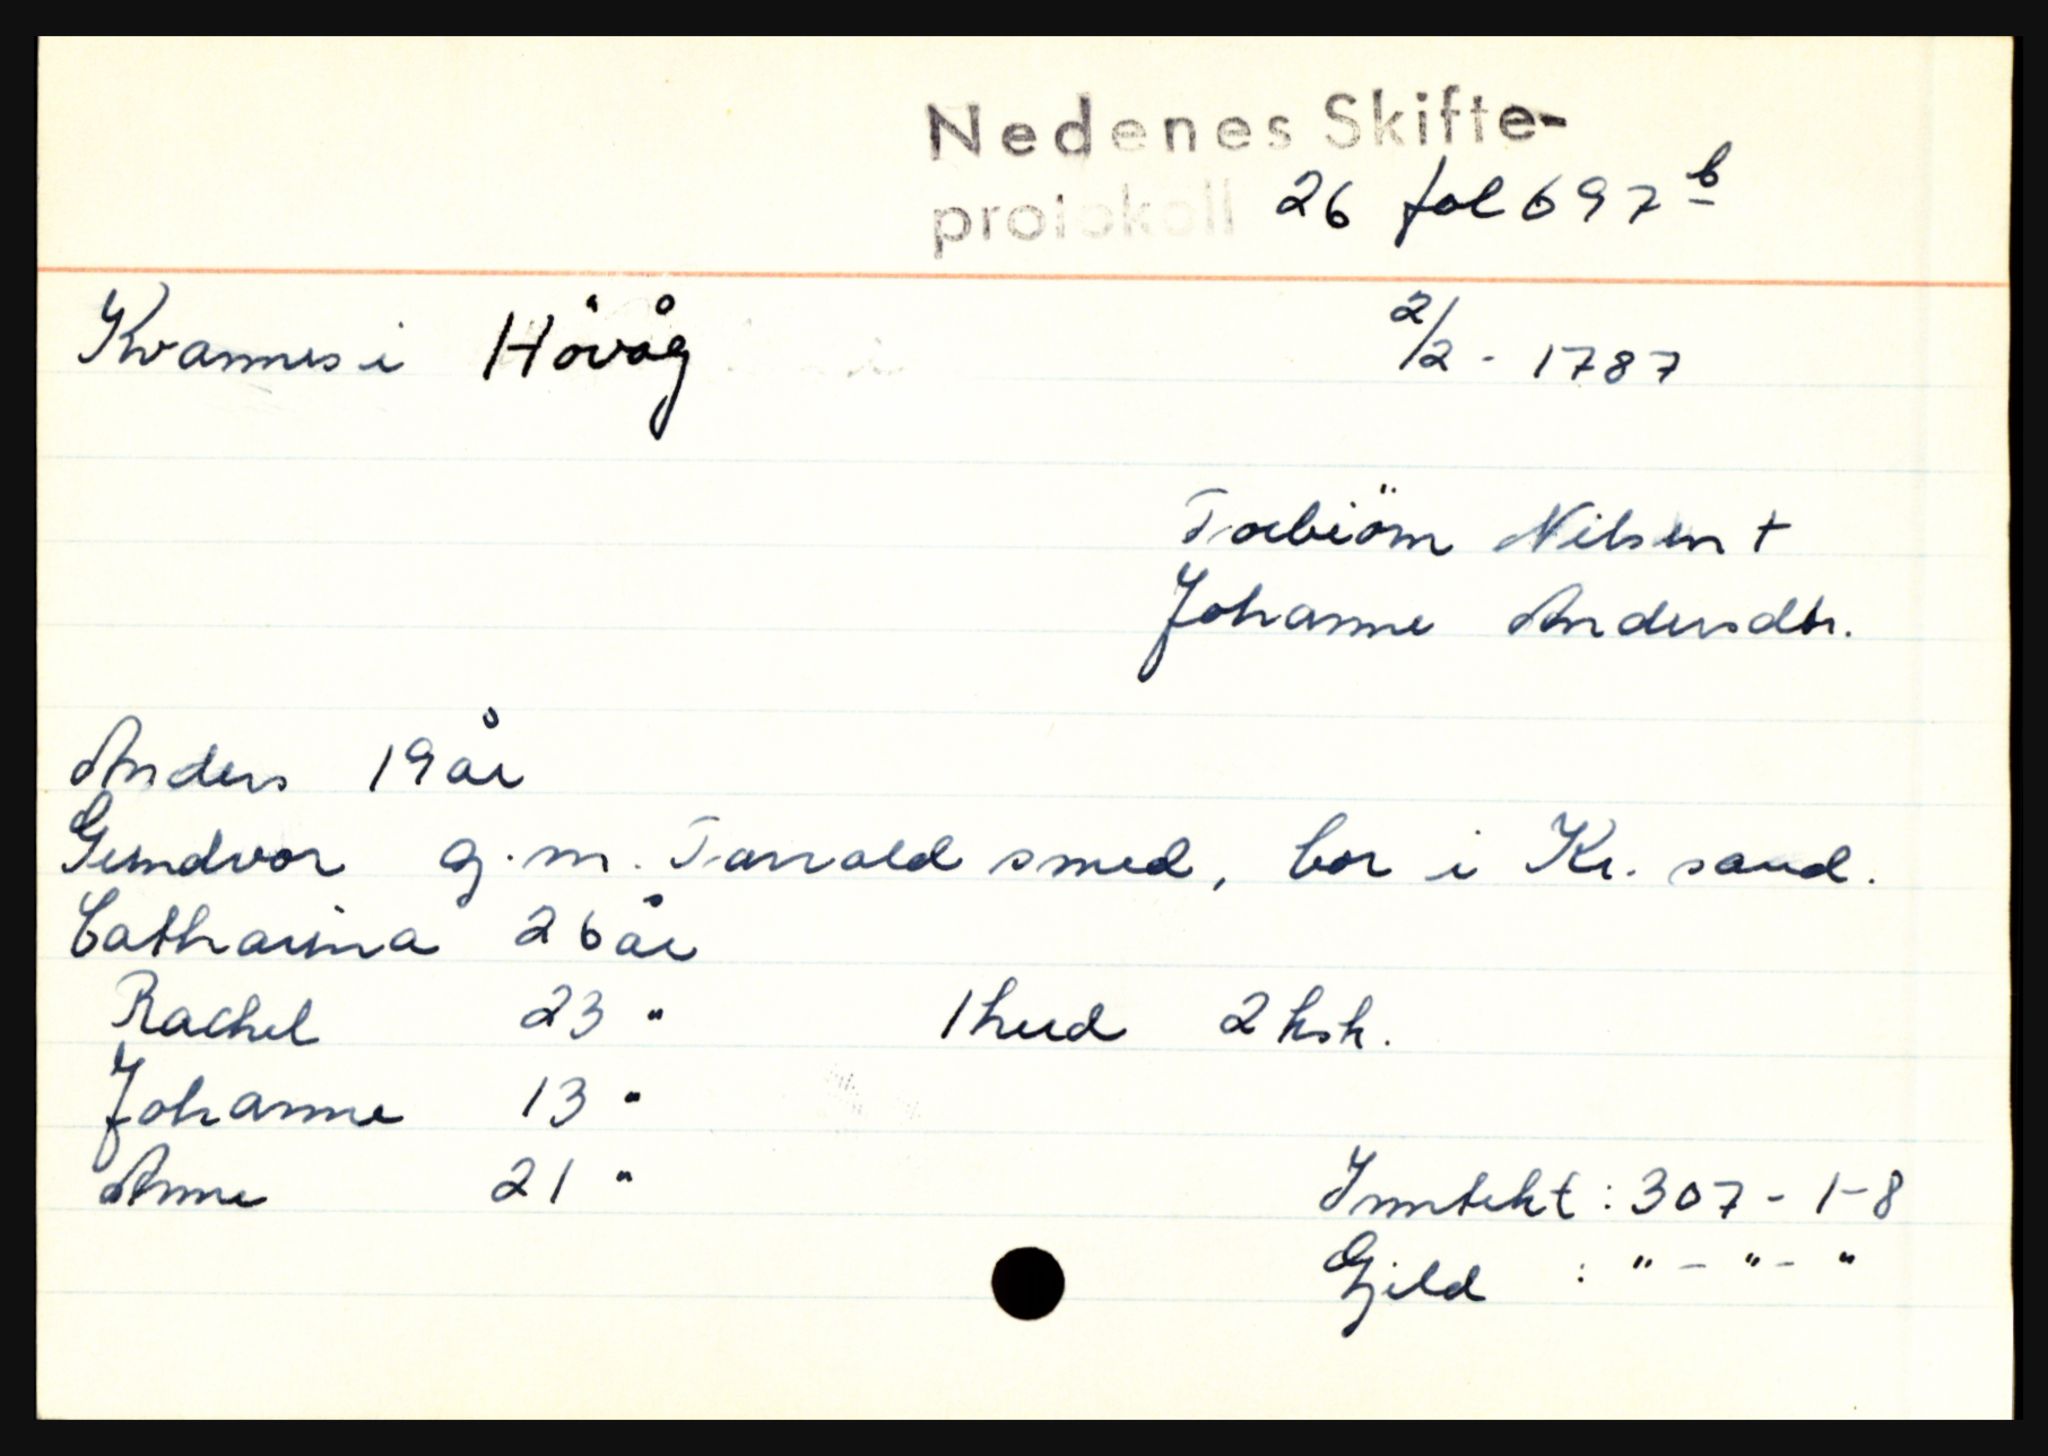 Nedenes Skifte-
protokoll 26 fol 697 b
Kvannes i Hövåg 2/2 - 1787
Torbiörn Nilsen +
Johanne Andersdtr.
Anders 19 år
Gundvor g.m. Tarrald smed, bor i Kr. sand.
Catharina 26 år
Rachel 23 " 1 hud 2 ksk.
Johanne 13 "
Anne 21 "
Inntekt : 307 - 1 - 8
Gjeld : " - " - "